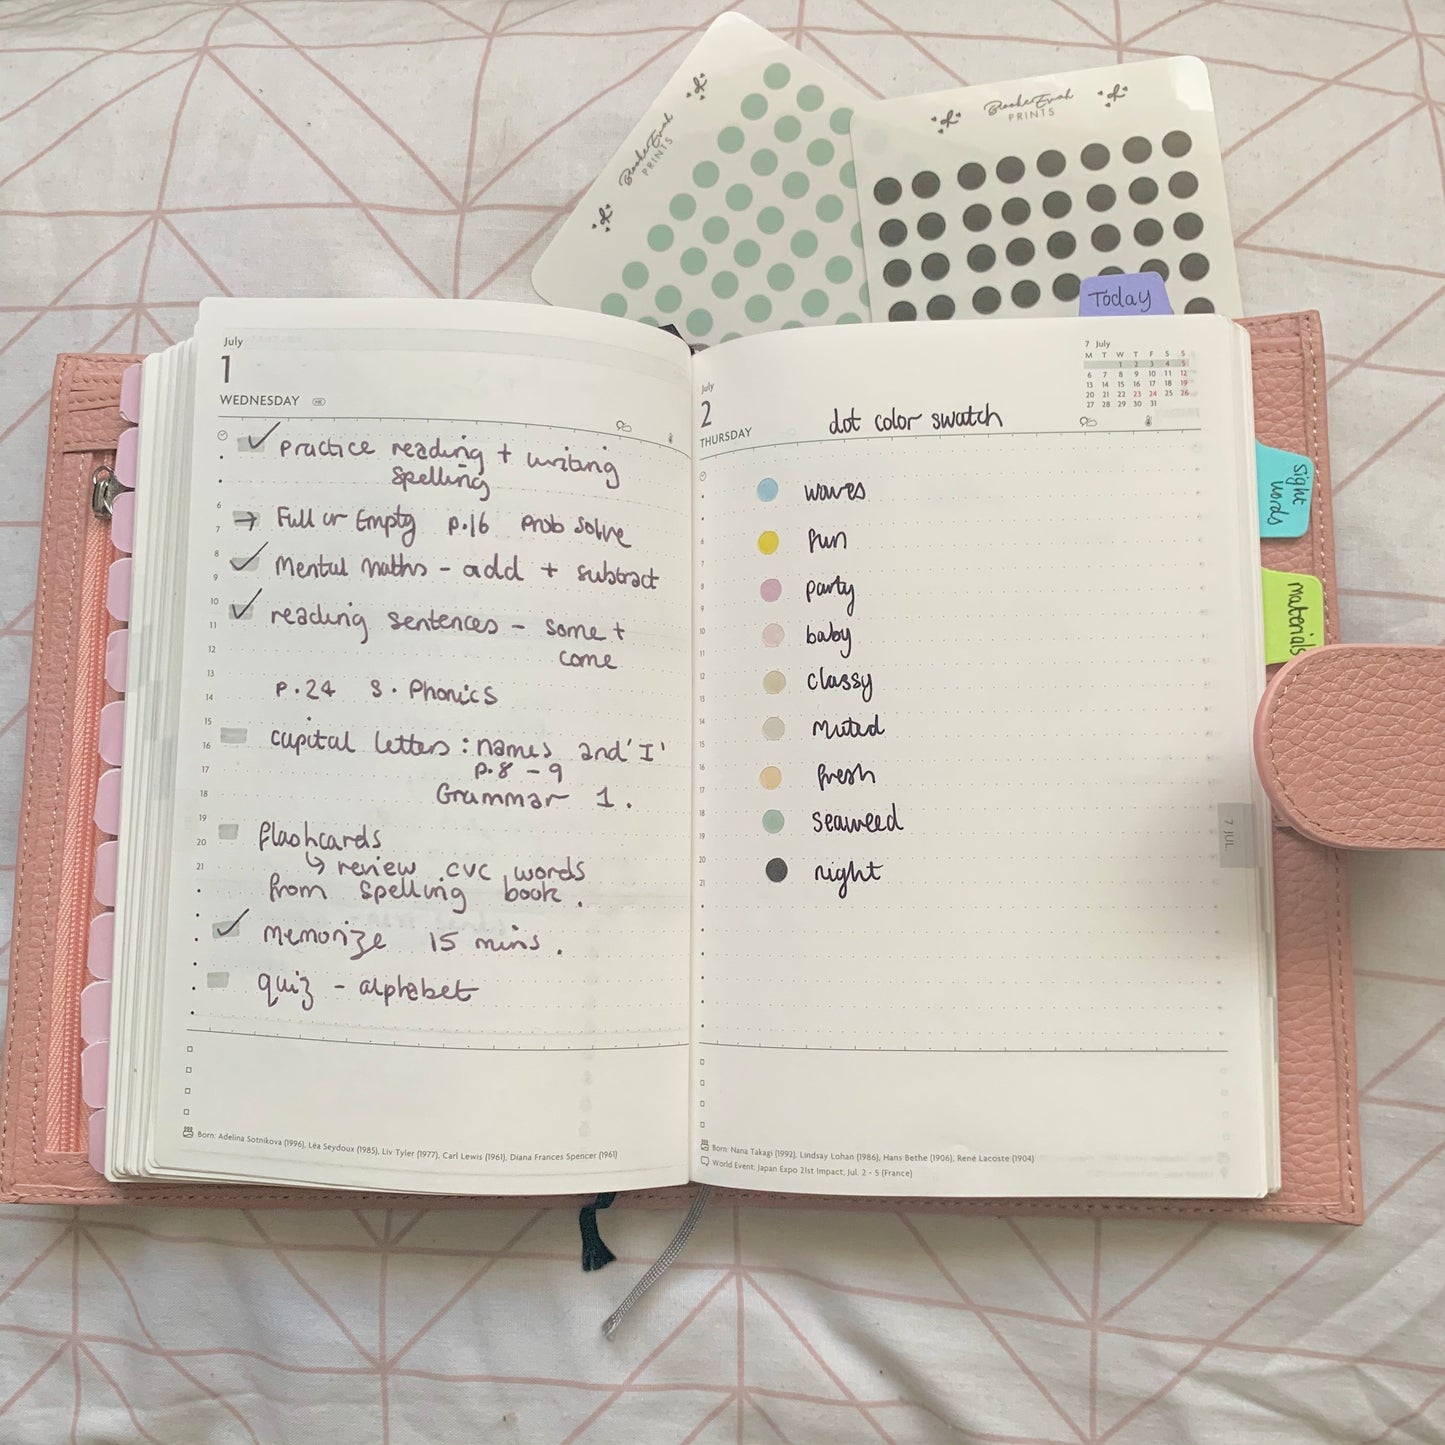 Brooke Evah
PRINTS
Brooke Evah
PRINTS
Today
July
1
WEDNESDAY
practice reading + writing
spelling
→ Full or Empty p.16 prob solve
Mental maths - add + subtract
reading sentences - some +
come
p.24 S. Phonics
capital letters : names and 'I'
p.8 - 9
Grammar 1.
flashcards
↳ review cvc words
from spelling book.
memorize 15 mins.
quiz - alphabet
6
7
8
9
10
11
12
13
14
15
16
17
18
19
20
21
Born: Adelina Sotnikova (1996), Léa Seydoux (1985), Liv Tyler (1977), Carl Lewis (1961), Diana Frances Spencer (1961)
July
2
THURSDAY
dot color swatch
7 July
M T W T F S S
1 2 3 4 5
6 7 8 9 10 11 12
13 14 15 16 17 18 19
20 21 22 23 24 25 26
27 28 29 30 31
waves
fun
party
baby
classy
muted
fresh
seaweed
night
6
7
8
9
10
11
12
13
14
15
16
17
18
19
20
21
Born: Nana Takagi (1992), Lindsay Lohan (1986), Hans Bethe (1906), René Lacoste (1904)
World Event: Japan Expo 21st Impact, Jul. 2 - 5 (France)
sight
words
materials
7 JUL